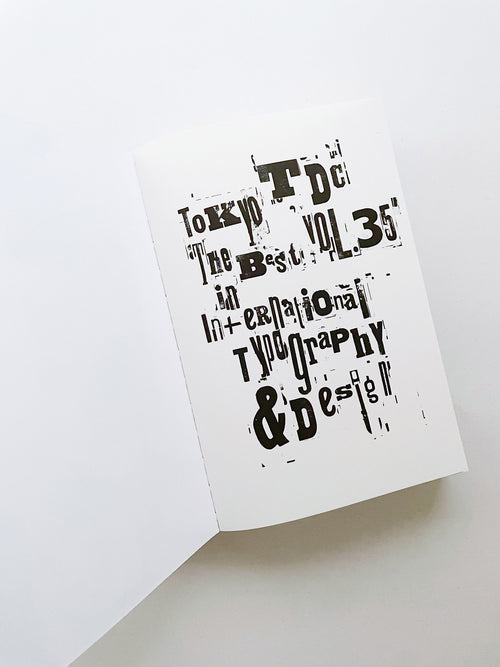 Tokyo TDC
Vol.35
"The Best
in
International
Typography
& Design"